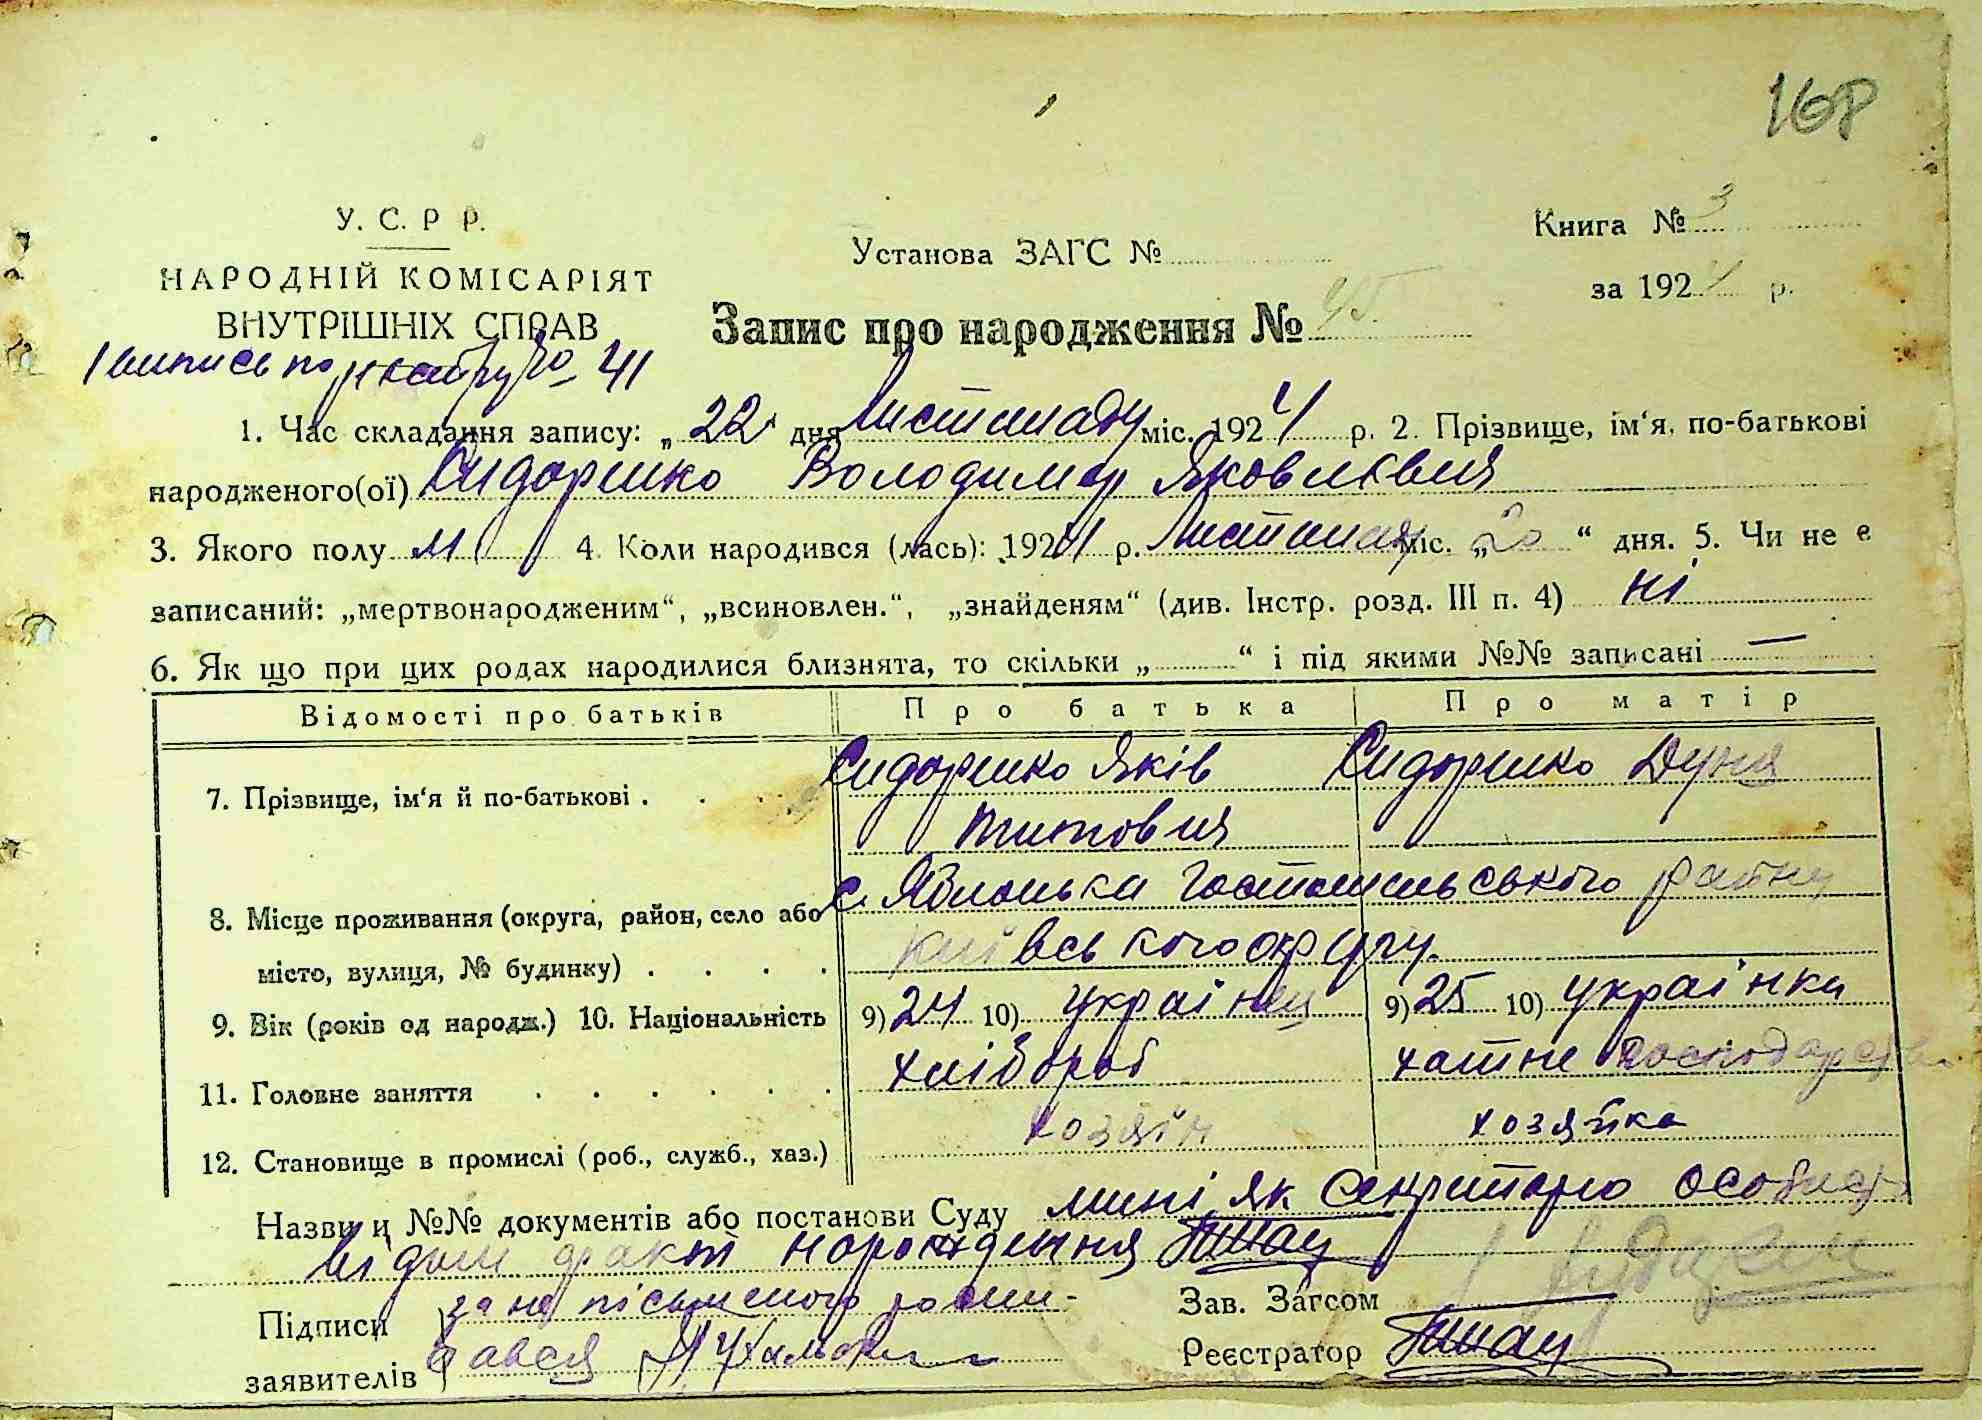 168
У. С. Р Р.
НАРОДНІЙ КОМІСАРІЯТ
ВНУТРІШНІХ СПРАВ
Установа ЗАГС №
Книга № 3
за 1924 р.
Запис про народження № 45.
1. Час складання запису: „22“ дня Листопаду міс. 1924 р. 2. Прізвище, ім‘я, по-батькові
народженого(ої) Сидоренко Володимир Яковлевич
3. Якого полу м 4. Коли народився (лась): 1924 р. Листопаду міс. „20“ дня. 5. Чи не є
записаний: „мертвонародженим“, „всиновлен.“, „знайденям“ (див. Інстр. розд. III п. 4) ні
6. Як що при цих родах народилися близнята, то скільки „ “ і під якими №№ записані —
Відомості про батьків Про батька Про матір
7. Прізвище, ім‘я й по-батькові . Сидоренко Яків Сидоренко Дуня
Титович
8. Місце проживання (округа, район, село або с. Яблонька Гостомельського району
місто, вулиця, № будинку) . . . . Київського округу.
9. Вік (років од народж.) 10. Національність 9) 24 10) українец 9) 25 10) українка
11. Головне заняття . . . . . . хлібороб хатне господарство
12. Становище в промислі (роб., служб., хаз.) хозяін хозяйка
Назви и №№ документів або постанови Суду мині як секритарю особисто
відом факт народження
Підписи за не пісьменого роспи-
заявителів сався
Зав. Загсом
Реєстратор